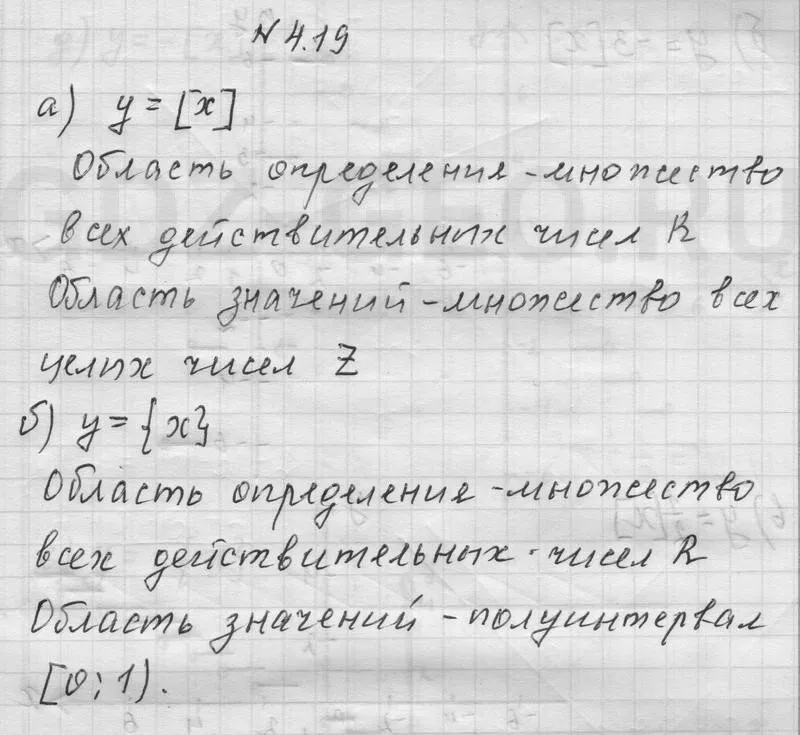 № 4.19
а) y = [x]
Область определения - множество
всех действительных чисел R
Область значений - множество всех
целых чисел Z
б) y = {x}
Область определения - множество
всех действительных чисел R
Область значений - полуинтервал
[0; 1).